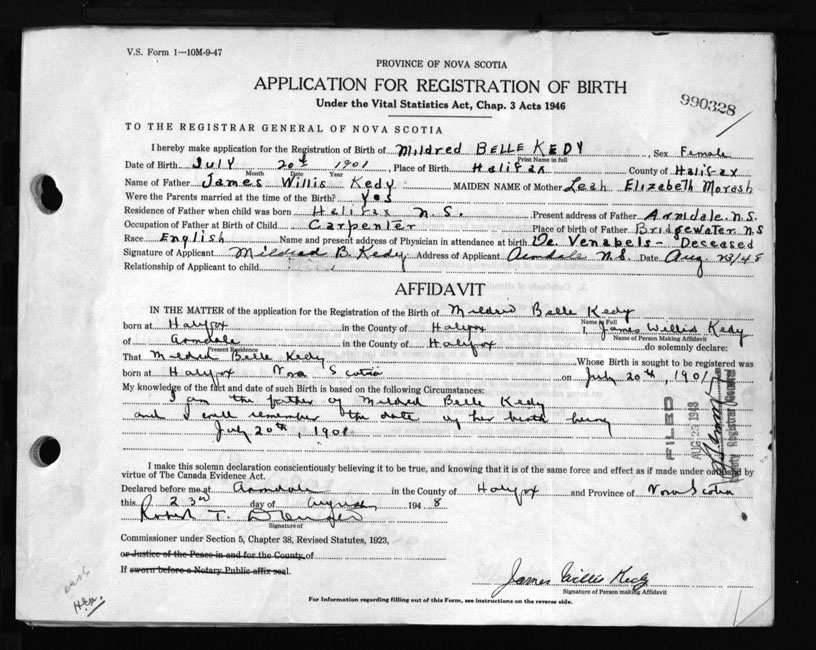 V.S. Form 1—10M-9-47
PROVINCE OF NOVA SCOTIA
APPLICATION FOR REGISTRATION OF BIRTH
Under the Vital Statistics Act, Chap. 3 Acts 1946
990328
TO THE REGISTRAR GENERAL OF NOVA SCOTIA
I hereby make application for the Registration of Birth of Mildred BELLE KEDY, Sex Female
Print Name in full
Date of Birth July 20th 1901, Place of Birth Halifax County of Halifax
Month Date Year
Name of Father James Willis Kedy MAIDEN NAME of Mother Leah Elizabeth Morash
Were the Parents married at the time of the Birth? Yes
Residence of Father when child was born Halifax N.S. Present address of Father Armdale. N.S.
Occupation of Father at Birth of Child Carpenter Place of birth of Father Bridgewater. N.S
Race English Name and present address of Physician in attendance at birth Dr. Venabels - Deceased
Signature of Applicant Mildred B. Kedy Address of Applicant Armdale N.S. Date Aug. 23/48
Relationship of Applicant to child
AFFIDAVIT
IN THE MATTER of the application for the Registration of the Birth of Mildred Belle Kedy
Name in Full
born at Halifax in the County of Halifax I, James Willis Kedy
Name of Person Making Affidavit
of Armdale in the County of Halifax do solemnly declare:
Present Residence
That Mildred Belle Kedy Whose Birth is sought to be registered was
born at Halifax Nova Scotia on July 20th, 1901
My knowledge of the fact and date of such Birth is based on the following Circumstances:
I am the father of Mildred Belle Kedy
and I well remember the date of her birth being
July 20th, 1901
FILED
AUG 25 1948
Deputy Registrar General
I make this solemn declaration conscientiously believing it to be true, and knowing that it is of the same force and effect as if made under oath and by
virtue of The Canada Evidence Act.
Declared before me at Armdale in the County of Halifax and Province of Nova Scotia
this 23rd day of August 1948
Robert T.
Signature of
Commissioner under Section 5, Chapter 38, Revised Statutes, 1923,
or Justice of the Peace in and for the County of
If sworn before a Notary Public affix seal.
James Willis Kedy
Signature of Person making Affidavit
For Information regarding filling out of this Form, see instructions on the reverse side.